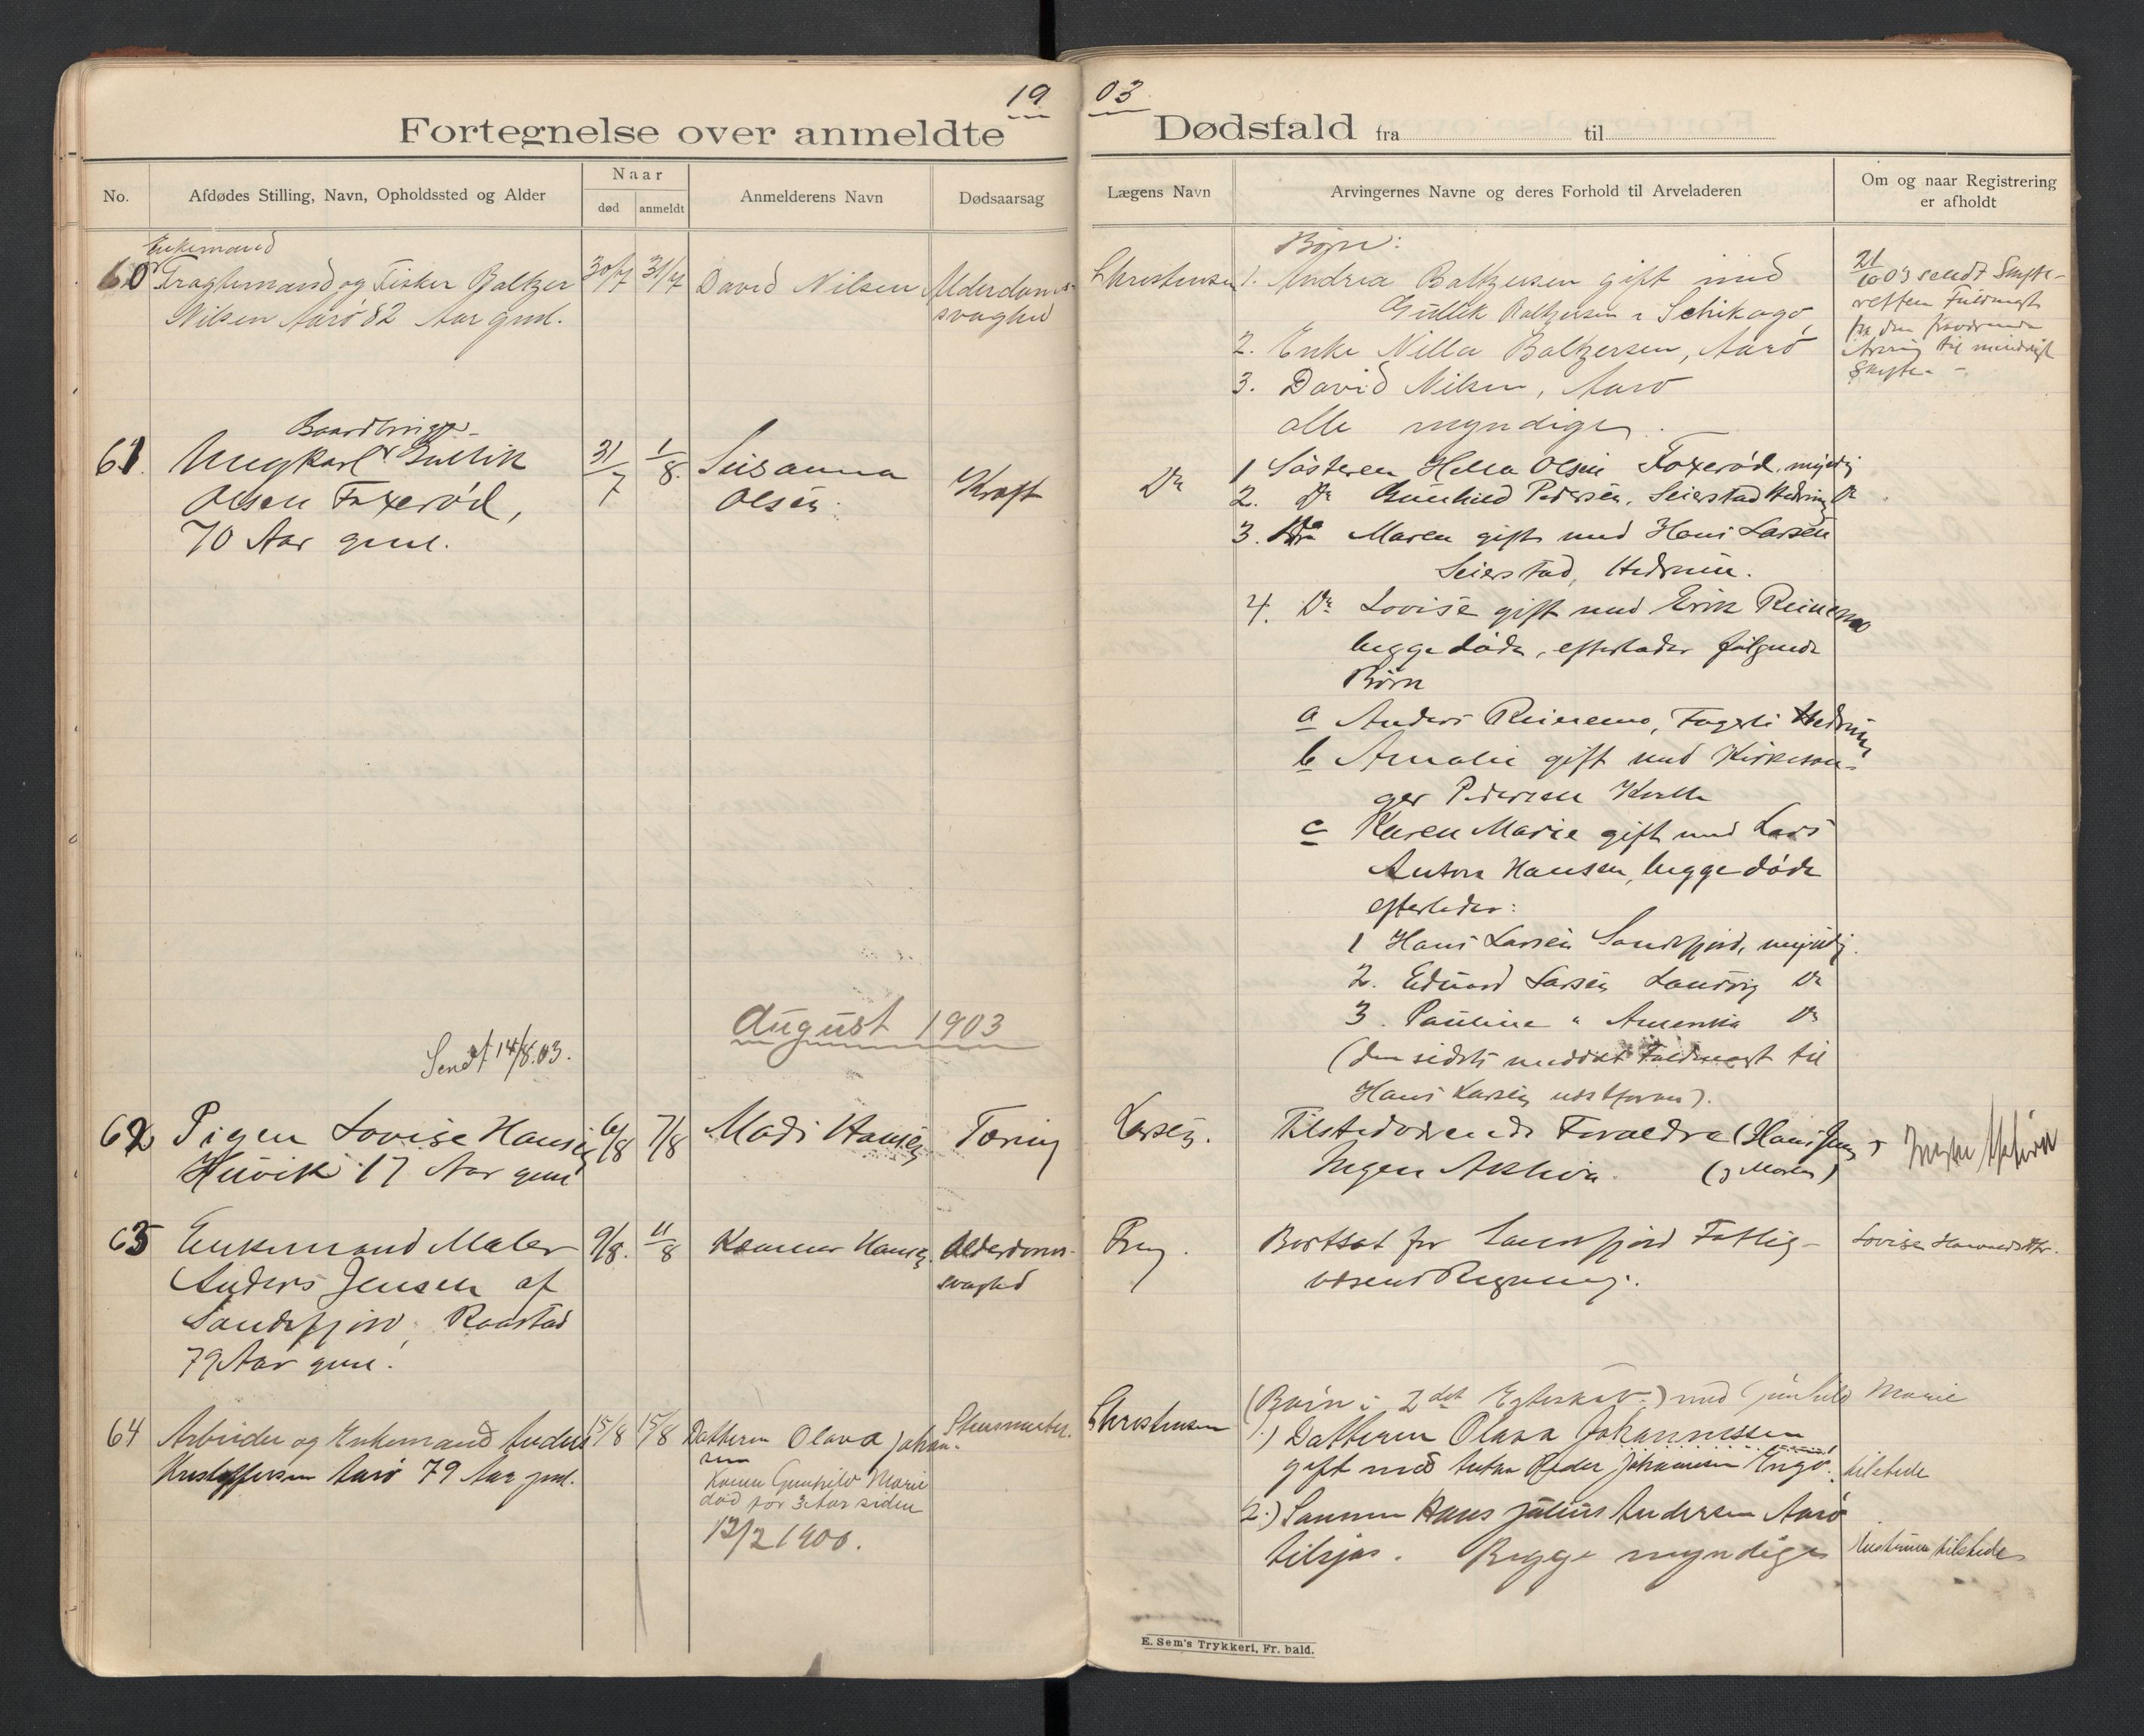 19 03
Fortegnelse over anmeldte Dødsfald fra til
No.
Afdødes Stilling, Navn, Opholdssted og Alder
Naar
død
anmeldt
Anmelderens Navn
Dødsaarsag
Lægens Navn
Arvingernes Navne og deres Forhold til Arveladeren
Om og naar Registrering
er afholdt
Enkemand
60 Fragtemand og Fisker Baltzer
Nilsen Aarö 82 Aar gml.
30/7
31/7
David Nilsen
Alderdoms-
svaghed
Christensen
Börn:
1. Andrea Baltzersen gift med
Gullik Baltzersen i Schikago,
2. Enke Nilla Baltzersen, Aarö
3. David Nilsen, Aarö
alle myndige.
21/10 03 sendt Skifte-
retten Fuldmagt
fra den
til mindeligt
Skifte.
61.
Ungkarl Gullik
Olsen Foxeröd,
70 Aar gml.
31/7
1/8.
Susanna
Olsen.
Kræft
Do
1 Sösteren Helia Olsen Foxeröd, myndig
2. Do Gunhild Pedersen, Seierstad Hedrum Do
3. Do Maren gift med Hans Larsen
Seierstad, Hedrum.
4. Do Lovise gift med Erik Reinemo
begge döde, efterlader fölgende
Börn
a Anders Reinemo, Fagerli Hedrum
b Amalie gift med Kirkesan-
ger Pedersen
c Karen Marie gift med Lars
Anton Hansen, begge döde
efterlader:
1 Hans Larsen Sandefjord, myndig.
2. Edvard Larsen Laurvig Do
3. Pauline " Amerika Do
(den sidste meddelt Fuldmagt til
Hans Larsen
August 1903
Sendt 14/8.03.
62 Pigen Lovise Hansen
Huvik 17 Aar gml
6/8
7/8
Madi Hansen
Tæring
Larsen.
Tilstedeværende Forældre (Hans
Ingen Aktiva. (g Maren)
Ingen Aktiva
63 Enkemand Maler
Anders Jensen af
Sandefjord, Raastad
79 Aar gml.
9/8.
11/8
Hansen.
Alderdoms-
svaghed
Bortsat for Sandefjord Fattig-
væsens Regning.
Lovise
64 Arbeider og Enkemand Anders
Kristoffersen Aarö 79 Aar gml.
15/8
15/8
Datteren Olava Johan-
sen
Konen Gunhild Marie
död for 3 Aar siden
12/2 1900.
Christensen
(Börn i 2det Egteskab) med Gunhild Marie
1.) Datteren Olava Johannessen
gift med Anton Peder Johannesen Engö.
tilstede
2.) Sønnen Hans Julius Andersen Aarö
tilsjös. Begge myndige
Hustruen tilstede
E. Sem's Trykkeri, Fr.hald.